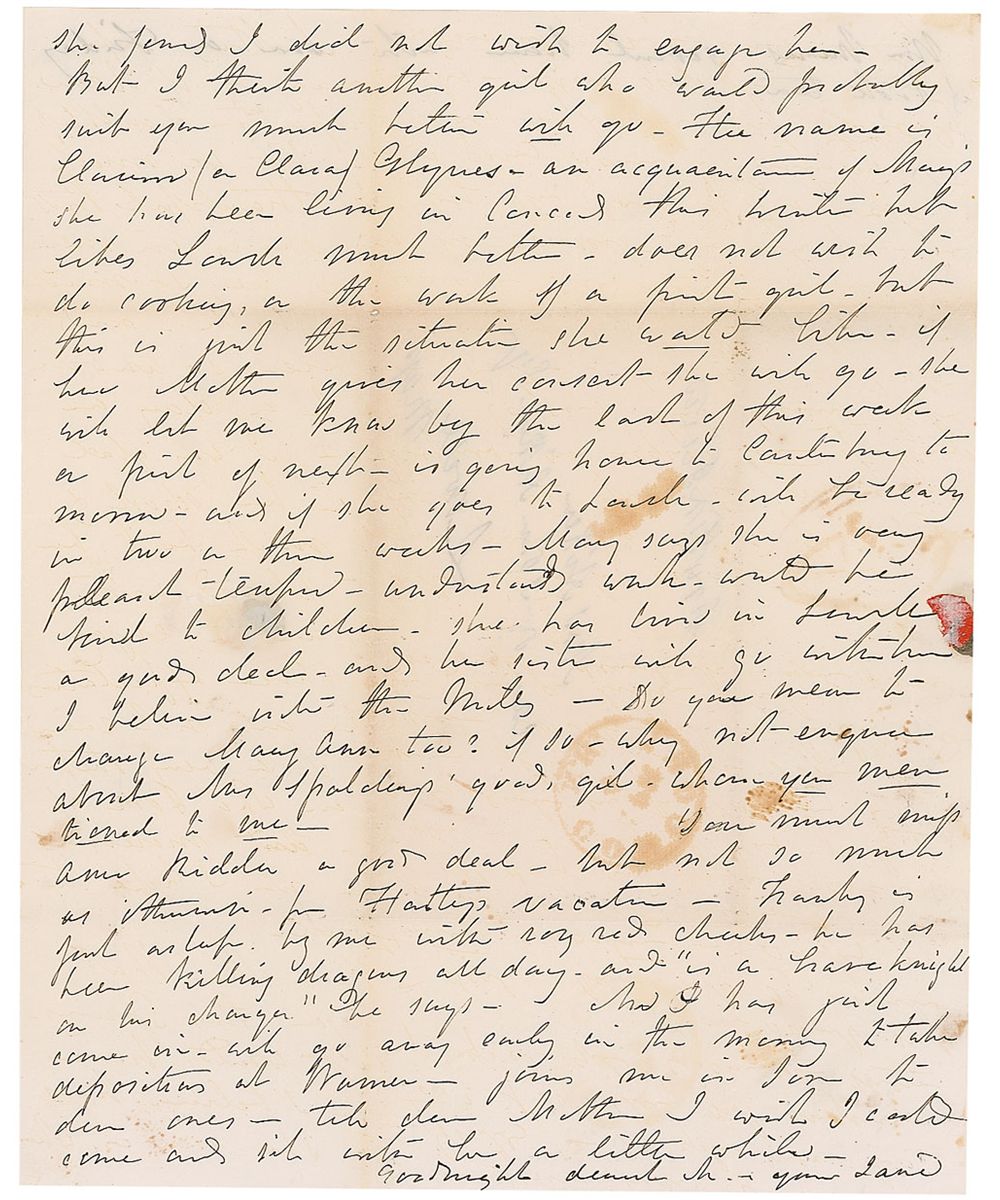 she found I did not wish to engage her -
But I think another girl who would probably
suit you much better will go - Her name is
(or Clara) Glynes - an acquaintance of Mary's
she has been living in Concord this winter but
likes Lowell much better - does not wish to
do cooking, or the work of a first girl - but
this is just the situation she would like - if
her Mother gives her consent she will go - she
will let me know by the last of this week
or first of next - is going home to Canterbury to
morrow - and if she goes to Lowell - will be ready
in two or three weeks - Mary says she is very
pleasant tempered - understands work - would be
kind to children - she has lived in Lowell
a good deal - and her sister will go with her
I believe into the Mills - Do you mean to
change Mary Ann too? if so - why not enquire
about Mrs Spaldings' good, girl - whom you men
tioned to me - You must miss
Ann Kidder a good deal - but not so much
as otherwise - for Hatty's vacation - Franky is
just asleep by me with rosy red cheeks - he has
been killing dragons all day - and "is a brave knight
on his charger" he says - has just
come in - will go away early in the morning to take
depositions at Warner - joins me in love to
dear ones - tell dear Mother I wish I could
come and sit with her a little while -
Goodnight dearest M. - your Jane